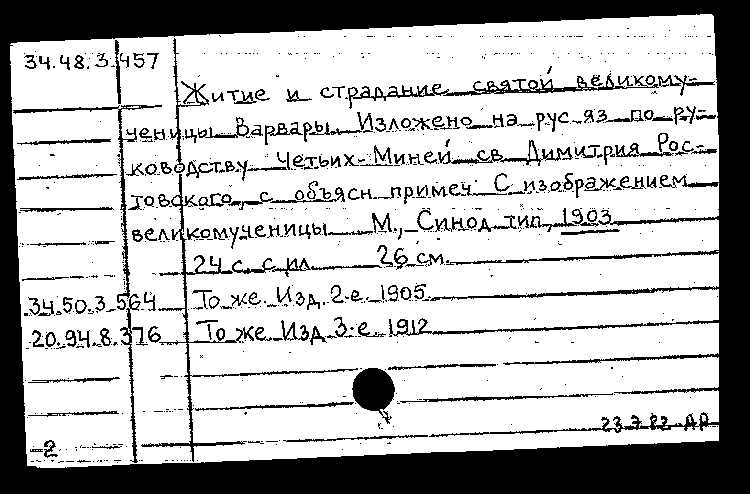 34.48.3.457
Житие и страдание святой великому-
ученицы Варвары. Изложено на рус яз по ру-
ководству Четьих-Миней св Димитрия Рос-
товского, с объясн примеч С изображением
великомученицы М., Синод тип, 1903
24 с. с ил 26 см.
34.50.3.564 То же. Изд 2-е. 1905
20.94.8.376 То же Изд 3-е. 1912
23.7.82 АР
2